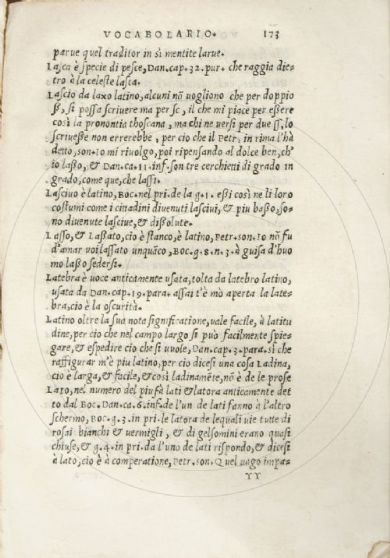 VOCABOLARIO. 173
parue quel traditor in sì mentite larue.
Lasca è specie di pesce, Dan. cap. 32. pur. che raggia die-
tro à la celeste lasca.
Lascio da laxo latino, alcuni nõ uogliono che per doppio
ß, si possa scriuere ma per sc, il che mi piace per eßere
così la prononcia thoscana, ma chi ne uersi per due ss, lo
scriueße non errerebbe, per cio che il Petr. in rima l'hà
detto, son. 10 mi riuolgo, poi ripensando al dolce ben, ch'
io laßo, & Dan. ca. 11. inf. son tre cerchietti di grado in
grado, come que, che lassi.
Lasciuo è latino, Boc. nel pri. de la g. 1. eßi così ne li loro
costumi come i cittadini diuenuti lasciui, & piu baßo, so-
no diuenute lasciue, & dißolute.
Lasso, & Laßato, cio è stanco, è latino, Petr. son. 10 nõ fu
d'amar voi lassato unquãco, Boc. g. 8. n. 3. à guisa d'huo
mo laßo sedersi.
Latebra è uoce anticamente usata, tolta da latebro latino,
usata da Dan. cap. 19. para. assai t'è mò aperta la late-
bra, cio è la oscurità.
Latino oltre la sua nota significatione, uale facile, à latitu
dine, per cio che nel campo largo si può facilmente spie-
gare, & espedire cio che si uuole, Dan. cap. 3. para. sì che
raffigurar m'è piu latino, per cio dicesi una cosa Ladina,
cio è larga, & facile, & così ladinamẽte, nõ è de le prose
Lato, nel numero del piu fà lati & latora anticamente det
to dal Boc. Dan. ca. 6. inf. de l'un de lati fanno à l'altro
schermo, Boc. g. 3. in pri. le latora de lequali uie tutte di
rosai bianchi & uermigli, & di gelsomini erano quasi
chiuse, & g. 4. in pri. da l'uno de lati rispondo, & dicesi
à lato, cio è à comperatione, Petr. son. Quel uago impa-
YY